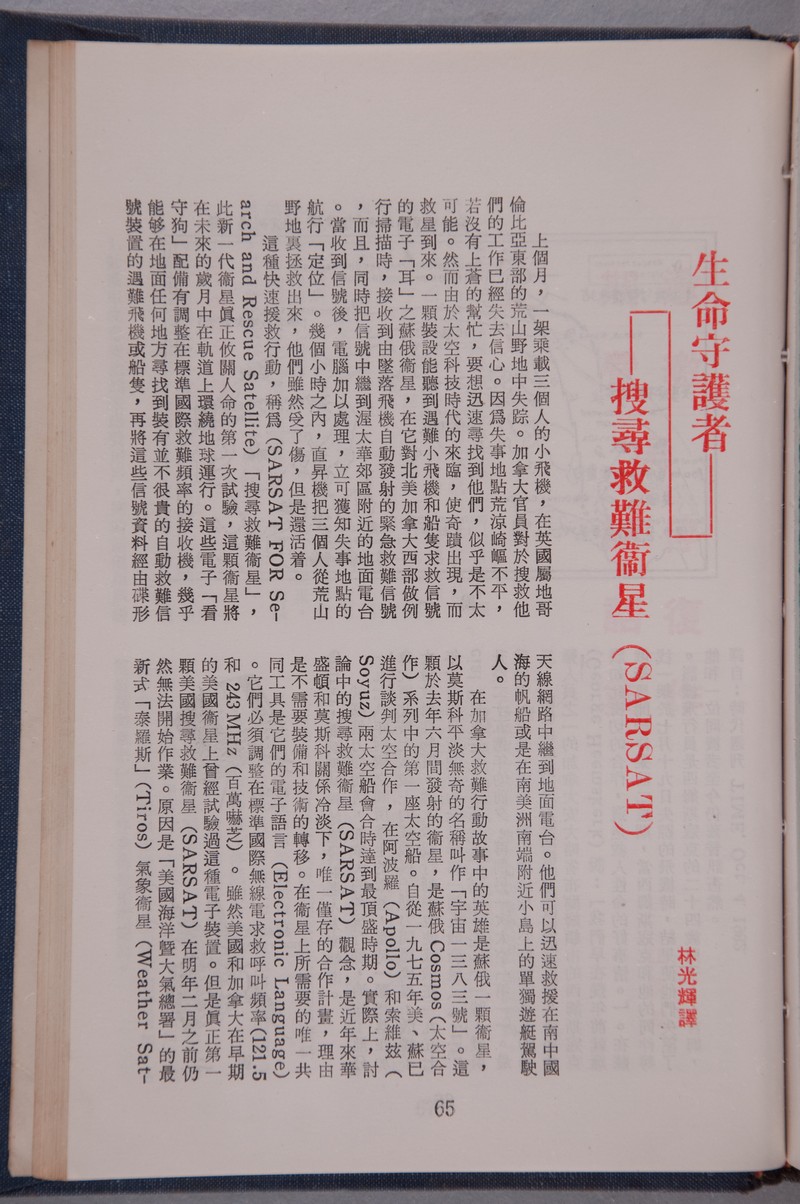 生命守護者——
——搜尋救難衞星（SARSAT）
林光輝譯
上個月，一架乘載三個人的小飛機，在英國屬地哥
倫比亞東部的荒山野地中失踪。加拿大官員對於搜救他
們的工作已經失去信心。因爲失事地點荒涼崎嶇不平，
若沒有上蒼的幫忙，要想迅速尋找到他們，似乎是不太
可能。然而由於太空科技時代的來臨，使奇蹟出現，而
救星到來。一顆裝設能聽到遇難小飛機和船隻求救信號
的電子「耳」之蘇俄衞星，在它對北美加拿大西部做例
行掃描時，接收到由墜落飛機自動發射的緊急救難信號
，而且，同時把信號中繼到渥太華郊區附近的地面電台
。當收到信號後，電腦加以處理，立可獲知失事地點的
航行「定位」。幾個小時之內，直昇機把三個人從荒山
野地裏拯救出來，他們雖然受了傷，但是還活着。
這種快速援救行動，稱爲（SARSAT FOR Se-
arch and Rescue Satellite）「搜尋救難衞星」，
此新一代衞星眞正攸關人命的第一次試驗，這顆衞星將
在未來的歲月中在軌道上環繞地球運行。這些電子「看
守狗」配備有調整在標準國際救難頻率的接收機，幾乎
能够在地面任何地方尋找到裝有並不很貴的自動救難信
號裝置的遇難飛機或船隻，再將這些信號資料經由碟形
天線網路中繼到地面電台。他們可以迅速救援在南中國
海的帆船或是在南美洲南端附近小島上的單獨遊艇駕駛
人。
在加拿大救難行動故事中的英雄是蘇俄一顆衞星，
以莫斯科平淡無奇的名稱叫作「宇宙一三八三號」。這
顆於去年六月間發射的衞星，是蘇俄 Cosmos（太空合
作）系列中的第一座太空船。自從一九七五年美、蘇已
進行談判太空合作，在阿波羅（Apollo）和索維茲（
Soyuz）兩太空船會合時達到最頂盛時期。實際上，討
論中的搜尋救難衞星（SARSAT）觀念，是近年來華
盛頓和莫斯科關係冷淡下，唯一僅存的合作計畫，理由
是不需要裝備和技術的轉移。在衞星上所需要的唯一共
同工具是它們的電子語言（Electronic Language）
。它們必須調整在標準國際無線電求救呼叫頻率(121.5
和 243 MHz（百萬嚇芝）。雖然美國和加拿大在早期
的美國衞星上曾經試驗過這種電子裝置。但是眞正第一
顆美國搜尋救難衞星（SARSAT）在明年二月之前仍
然無法開始作業。原因是「美國海洋暨大氣總署」的最
新式「泰羅斯」（Tiros）氣象衞星（Weather Sat-
65